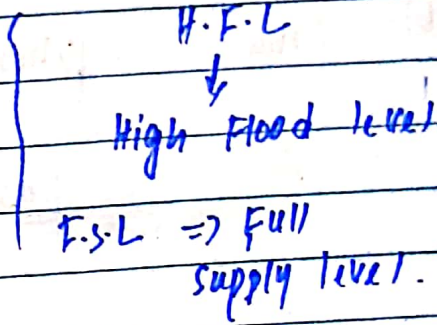 H.F.L
↓
High Flood level
F.S.L => Full
supply level.